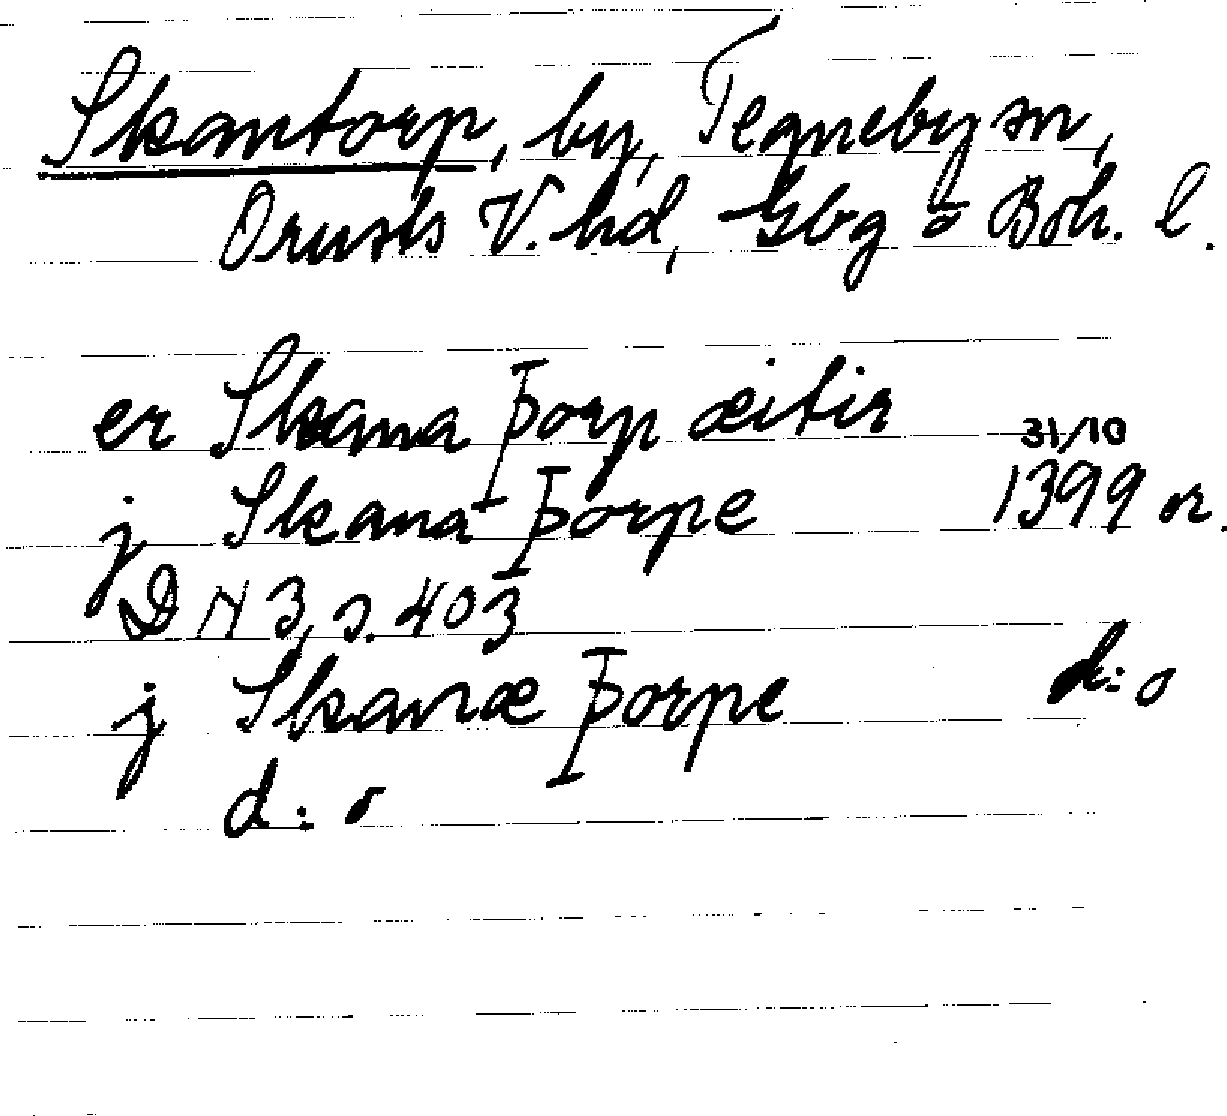 Skantorp, by, Tegneby sn,
Orusts V. hd, Gbg o Boh. l.
er Skana þorp æitir 31/10
j Skana þorpe 1399 or.
DN 3, s. 403
j Skanæ þorpe d:o
d:o